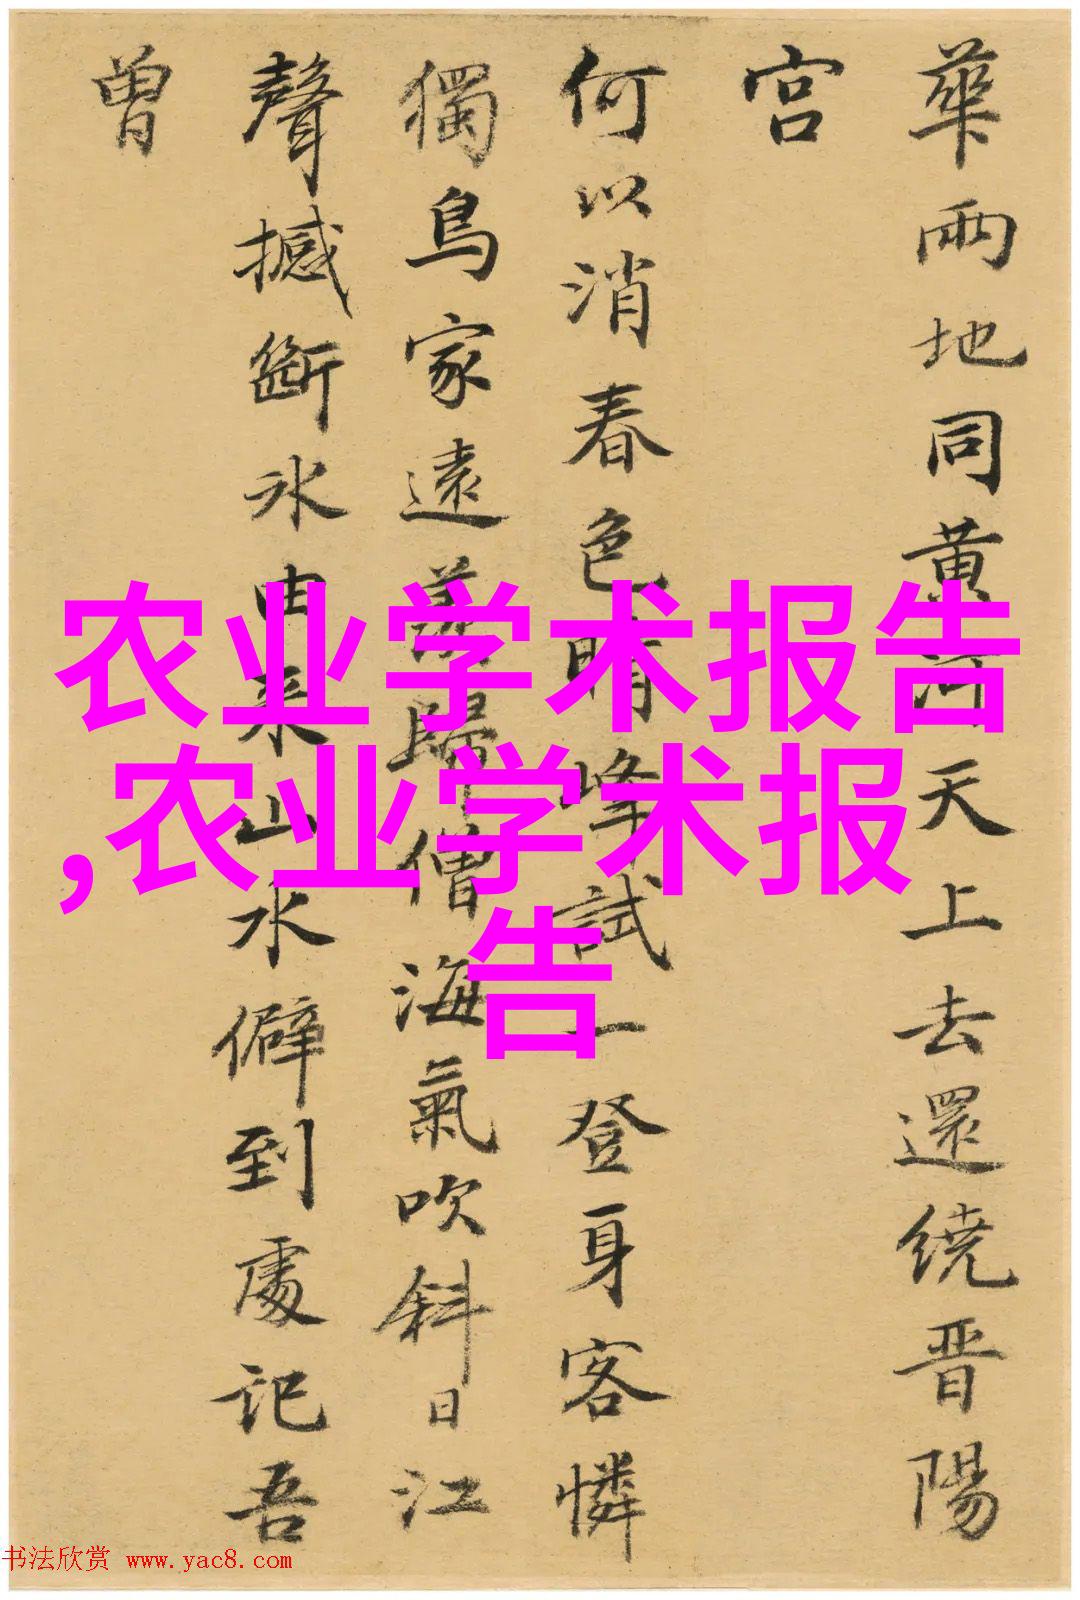 華兩地同黄河天上去還繞晋陽
宫
何以消春色晴峰試一登身客憐
獨鳥家遠羨歸僧海氣吹斜日江
聲撼斷冰由来山水僻到處記吾
曾
农业学术报告
,农业学术报
告
书法欣赏 www.yac8.com